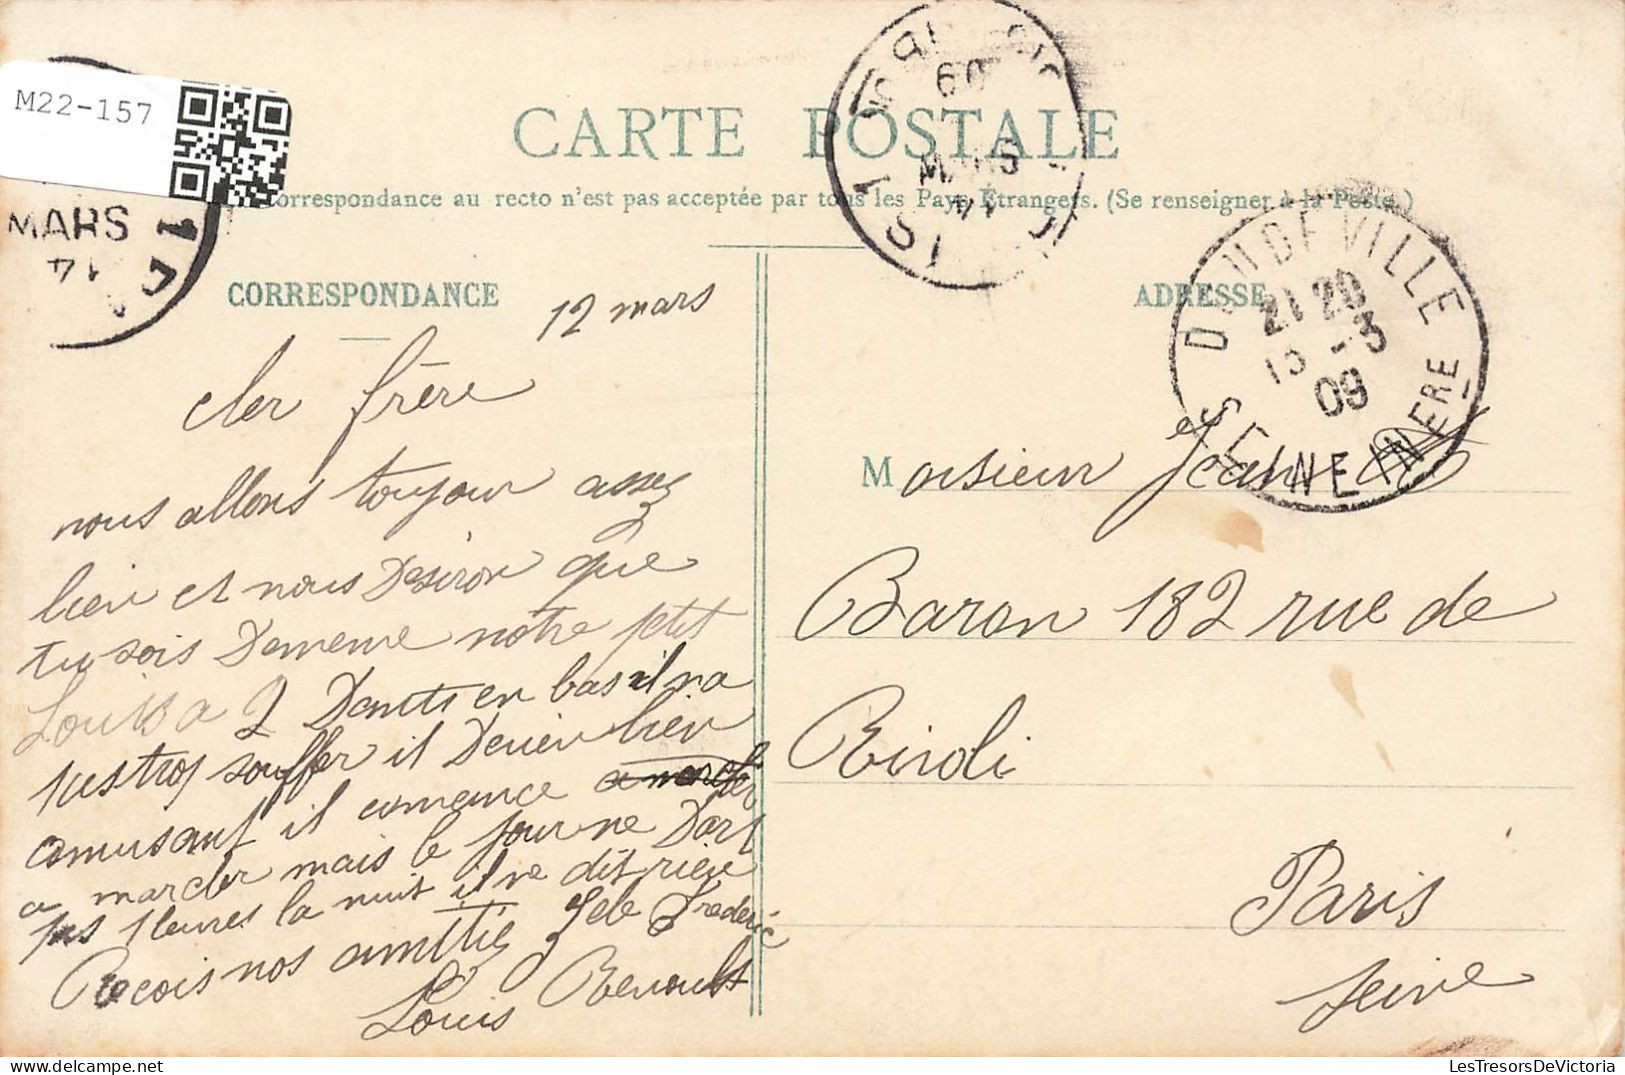 M22-157
CARTE POSTALE
MARS
14
09
MARS
14
correspondance au recto n'est pas acceptée par tous les Pays Étrangers. (Se renseigner à la Poste.)
CORRESPONDANCE
ADRESSE
DOUDEVILLE
21 20
13 -3
09
SEINE INFERE
12 mars
cher frère
nous allons toujour assez
bien et nous Desiron que
tu sois Dememe notre petit
Louis a 2 Dents en bas il na
pas trop souffer il Devien bien
amusant il comence a marcher
a marcher mais le jour ne Dort
pas pleures la nuit il ne dit rien
Recois nos amitiés Frederic
Louis Renoult
Monsieur Jean
Baron 182 rue de
Rivoli
Paris
Seine
LesTresorsDeVictoria